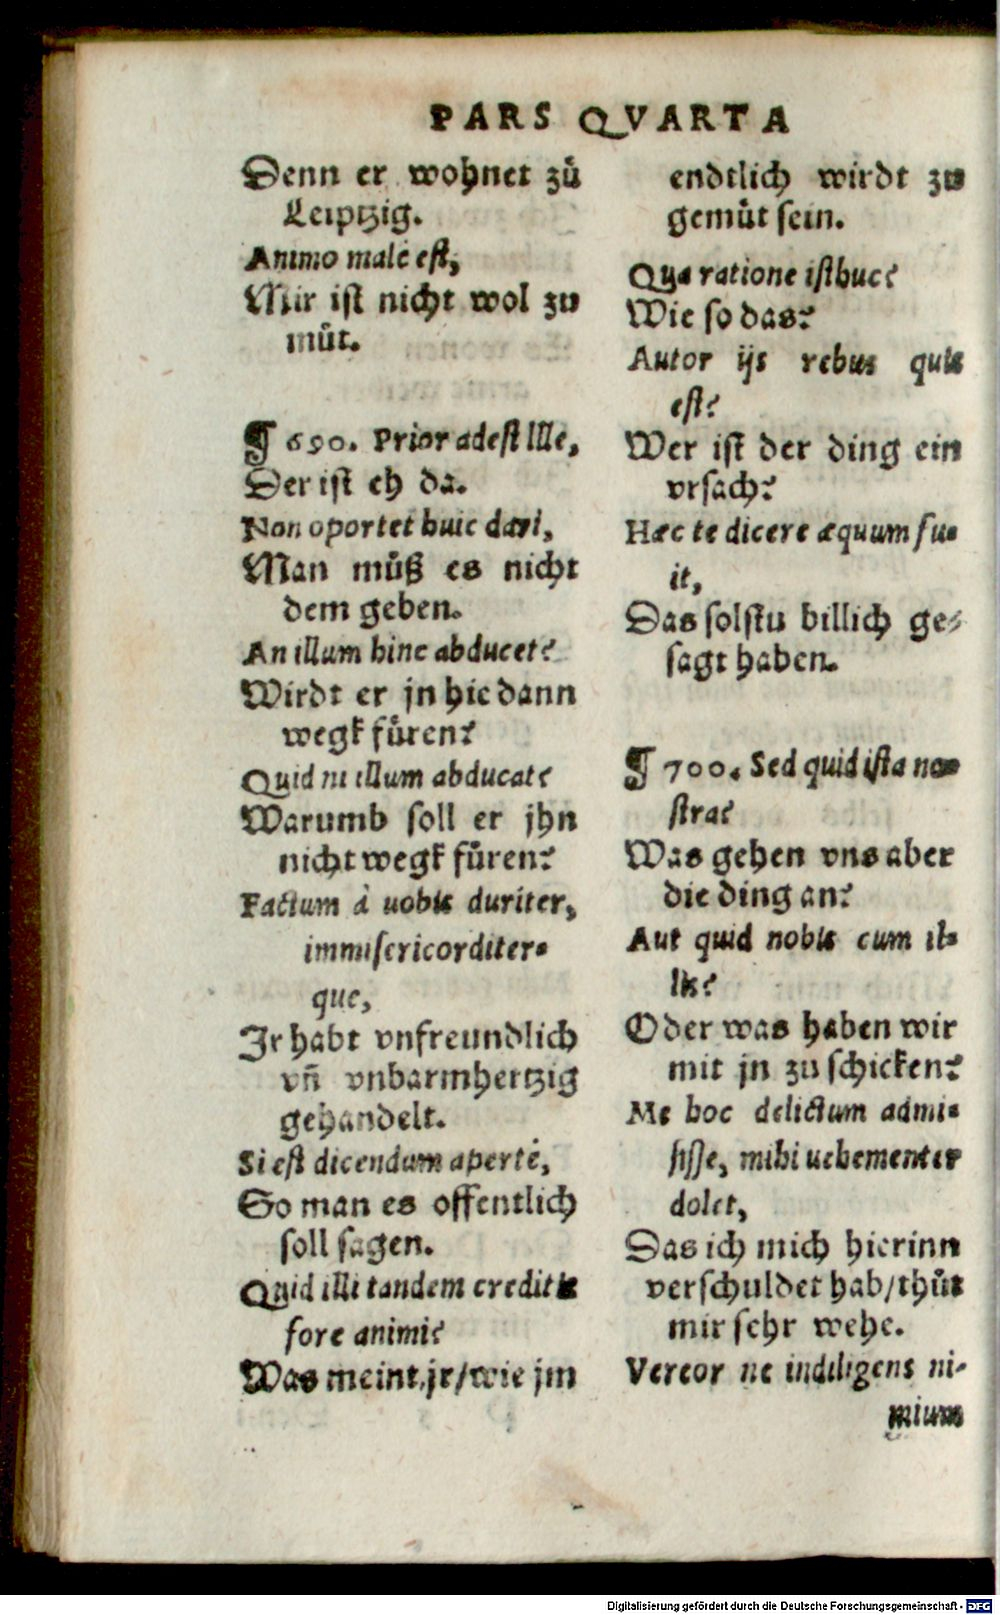 PARS QVARTA
Denn er wohnet zů
Leiptzig.
Animo malè est,
Mir ist nicht wol zu
můt.
¶ 690. Prior adest Ille,
Der ist eh da.
Non oportet huic dari,
Man můß es nicht
dem geben.
An illum hinc abducet?
Wirdt er jn hie dann
wegk fůren?
Quid ni illum abducat?
Warumb soll er jhn
nicht wegk fůren?
Factum à uobis duriter,
immisericorditer-
que,
Jr habt vnfreundlich
vñ vnbarmhertzig
gehandelt.
Si est dicendum apertè,
So man es offentlich
soll sagen.
Quid illi tandem creditis
fore animi?
Was meint jr/wie jm
endtlich wirdt zu
gemůt sein.
Qua ratione isthuc?
Wie so das?
Autor ijs rebus quis
est?
Wer ist der ding ein
vrsach?
Hæc te dicere æquum fu-
it,
Das solstu billich ge-
sagt haben.
¶ 700. Sed quid ista no-
stra?
Was gehen vns aber
die ding an?
Aut quid nobis cum il-
lis?
Oder was haben wir
mit jn zu schicken?
Me hoc delictum admi-
sisse, mihi uehementer
dolet,
Das ich mich hierinn
verschuldet hab/thůt
mir sehr wehe.
Vereor ne indiligens ni-
mium
Digitalisierung gefördert durch die Deutsche Forschungsgemeinschaft - DFG